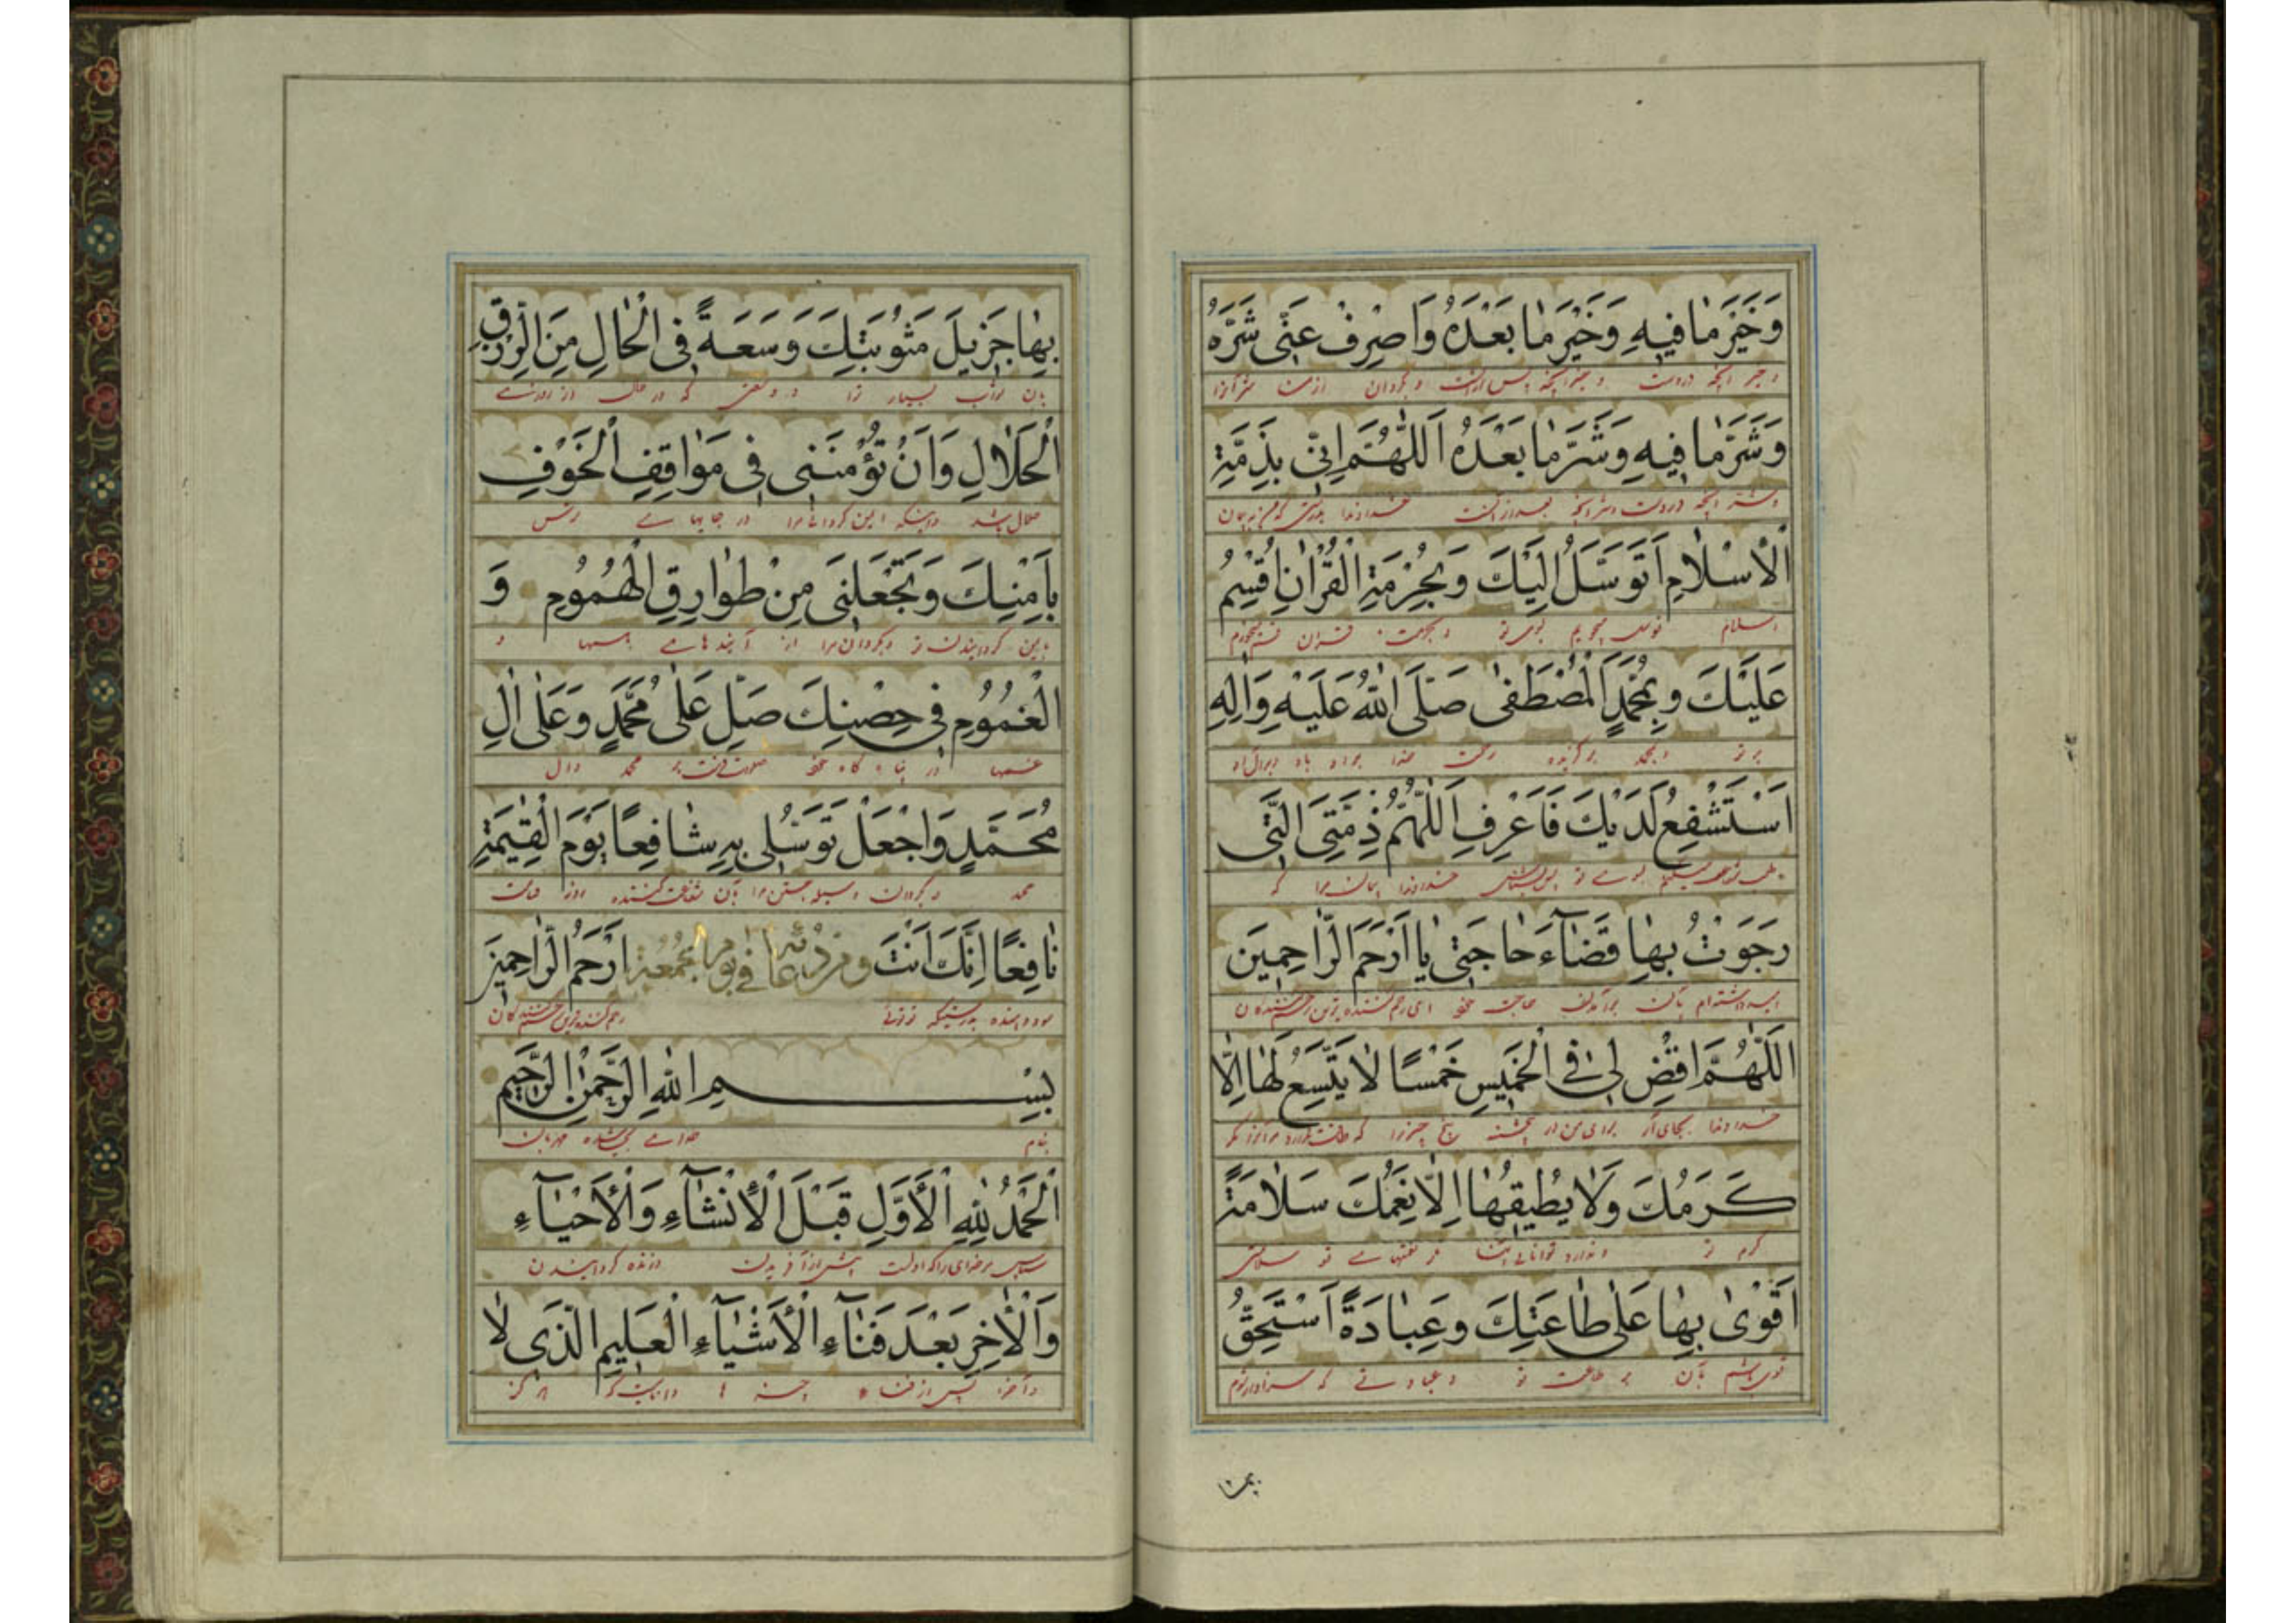 وَخَيْرَ مٰا فيهِ وَخَيْرَ مٰا بَعْدَهُ وَاصْرِفْ عَنّى شَرَّهُ
و خیر آنچه دروست و خیر آنچه پس از آنست و بگردان از من شر آنرا
وَشَرَّ مٰا فيهِ وَشَرَّ مٰا بَعْدَهُ اَللّٰهُمَّ اِنّى بِذِمَّةِ
و شر آنچه دروست و شر آنچه بعد از آنست خداوندا بدرستی که من به پیمان
الْاِسْلٰامِ اَتَوَسَّلُ اِلَيْكَ وَبِحُرْمَةِ الْقُرْاٰنِ اُقْسِمُ
اسلام توسل میجویم بسوی تو و بحرمت قرآن قسم میخورم
عَلَيْكَ وبِمُحَمَّدٍ الْمُصْطَفىٰ صَلَّى اللّٰهُ عَلَيْهِ وَاٰلِهِ
بر تو و بمحمد برگزیده رحمت خدا بر او باد و بر آل او
اَسْتَشْفِعُ لَدَيْكَ فَاعْرِفِ اَللّٰهُمَّ ذِمَّتِىَ الَّتى
خداوندا پیمان مرا که
رَجَوْتُ بِهٰا قَضٰآءَ حٰاجَتى يٰا اَرْحَمَ الرّٰاحِمينَ
امید داشته‌ام بآن برآمدن حاجت خود ای رحم کننده ترین رحم کنندکان
اَللّٰهُمَّ اقْضِ لى فِى الْخَميسِ خَمْسًا لٰا يَتَّسِعُ لَهٰا اِلّٰا
خداوندا بجای آر برای من در پنجشنبه پنج چیز را که طاقت ندارد مر آنرا مکر
كَرَمُكَ وَلٰا يُطيقُهٰا اِلّٰا نِعَمُكَ سَلٰامَةً
کرم تو و ندارد توانائی آنها مکر نعمتهای تو سلامتی
اَقْوىٰ بِهٰا عَلىٰ طٰاعَتِكَ وعِبٰادَةً اَسْتَحِقُّ
قوی باشم بآن بر طاعت تو و عبادتی که سزاوار شوم
بها
بِهٰا جَزيلَ مَثُوبَتِكَ وَسَعَةً فِى الْحٰالِ مِنَ الرِّزْقِ
بآن ثواب بسیار ترا و وسعتی که در حال از روزی
الْحَلٰالِ وَاَنْ تُؤْمِنَنى فى مَوٰاقِفِ الْخَوْفِ
حلال باشد و اینکه ایمن کردانی مرا در جایهای ترس
بِاَمْنِكَ وَتَجْعَلَنى مِنْ طَوٰارِقِ الْهُمُومِ وَ
بایمن کردانیدن تو و بکردان مرا از آیندهای همها و
الْغُمُومِ فى حِصْنِكَ صَلِّ عَلىٰ مُحَمَّدٍ وَعَلىٰ اٰلِ
غمها در پناه کاه خود صلوات فرست بر محمد و آل
مُحَمَّدٍ وَاجْعَلْ تَوَسُّلى بِهِ شٰافِعًا يَوْمَ الْقِيٰمَةِ
محمد و بکردان وسیله جستن مرا بآن شفاعت کننده روز قیامت
نٰافِعًا اِنَّكَ اَنْتَ ومن دعائه فى يوم الجمعة اَرْحَمُ الرّٰاحِمينَ
سود دهنده بدرستیکه تو توئی رحم کننده ترین رحم کنندکان
بِسْمِ اللّٰهِ الرَّحْمٰنِ الرَّحيمِ
بنام خدای بخشنده مهربان
اَلْحَمْدُ لِلّٰهِ الْاَوَّلِ قَبْلَ الْاِنْشٰآءِ وَالْاَحْيٰآءِ
سپاس مر خدای را که اولست پیش از آفریدن و زنده کردانیدن
وَالْاٰخِرِ بَعْدَ فَنٰآءِ الْاَشْيٰآءِ الْعَليمِ الَّذى لٰا
و آخر پس از فناء چیزها داناییست که هرکز